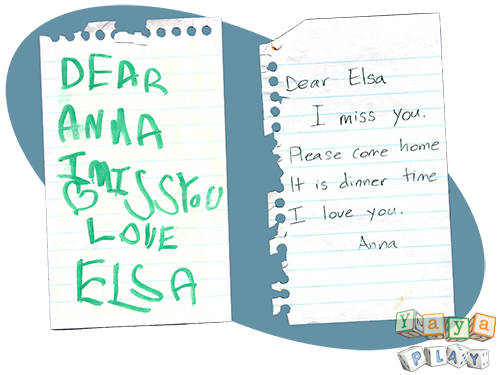 DEAR
ANNA
I MISS YOU
LOVE
ELSA
Dear Elsa
I miss you.
Please come home
It is dinner time
I love you.
Anna
Yaya
PLAY